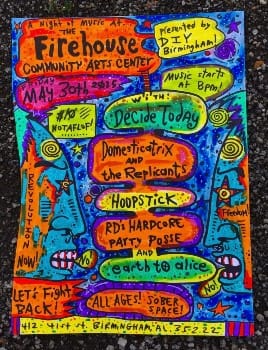 A Night of Music At...
THE
Firehouse
COMMUNITY ARTS CENTER
presented by
DIY
Birmingham!
MAY 30th 2015
MUSIC starts
at 8pm!
WITH:
Decide Today
NOTAFLOF!
Domesticatrix
AND
the Replicants
HOOPSTICK
RD's HARDCORE
PARTY POSSE
AND
earth to alice
REVOLUTION
NOW!
Freedom
No!
No!
LET'S Fight
BACK!
ALL AGES! SOBER
SPACE!
412 41st st. BIRMINGHAM, AL. 35222